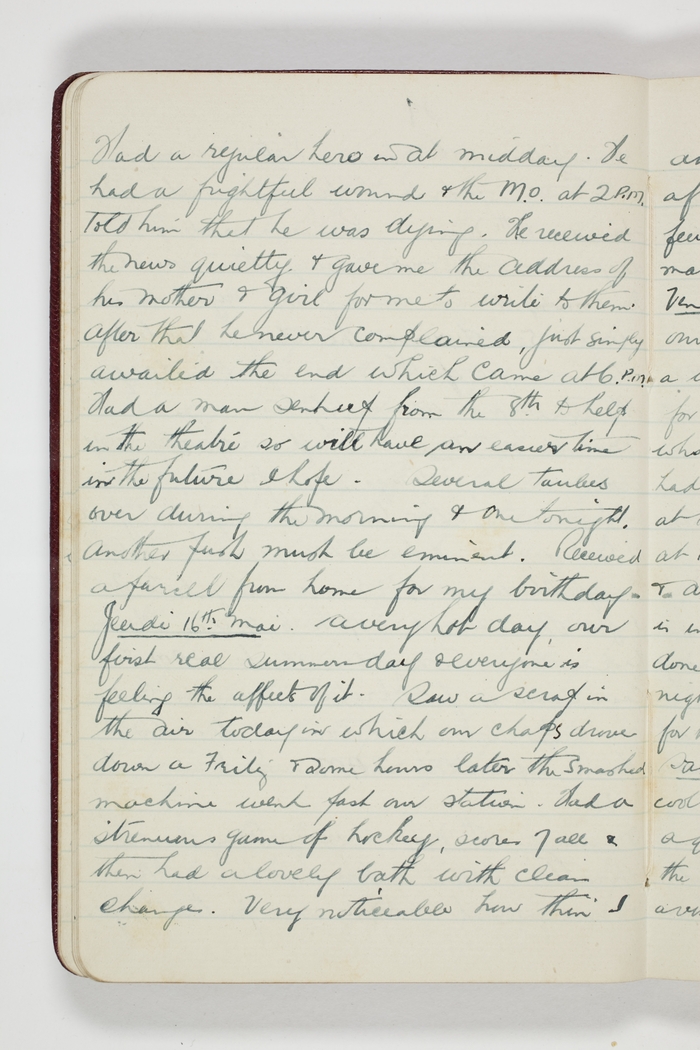 Had a regular hero in at midday. He
had a frightful wound & the M.O. at 2 P.M.
Told him that he was dying. He received
the news quietly & gave me the address of
his mother & girl for me to write to them.
after that he never complained, just simply
awaited the end which came at 6. P.M.
Had a man sent up from the 8th to help
in the theatre so will have an easier time
in the future I hope - Several taubes
over during the morning & one tonight.
Another push must be eminent. Received
a parcel from home for my birthday-
Jeudi 16th Mai. a very hot day, our
first real summers day & everyone is
feeling the affects of it. Saw a scrap in
the air today in which our chaps drove
down a Fritz & some hours later the smashed
machine went past our station. Had a
strenuous game of hockey, scores 7 all &
then had a lovely bath with clean
change. Very noticeable how thin I